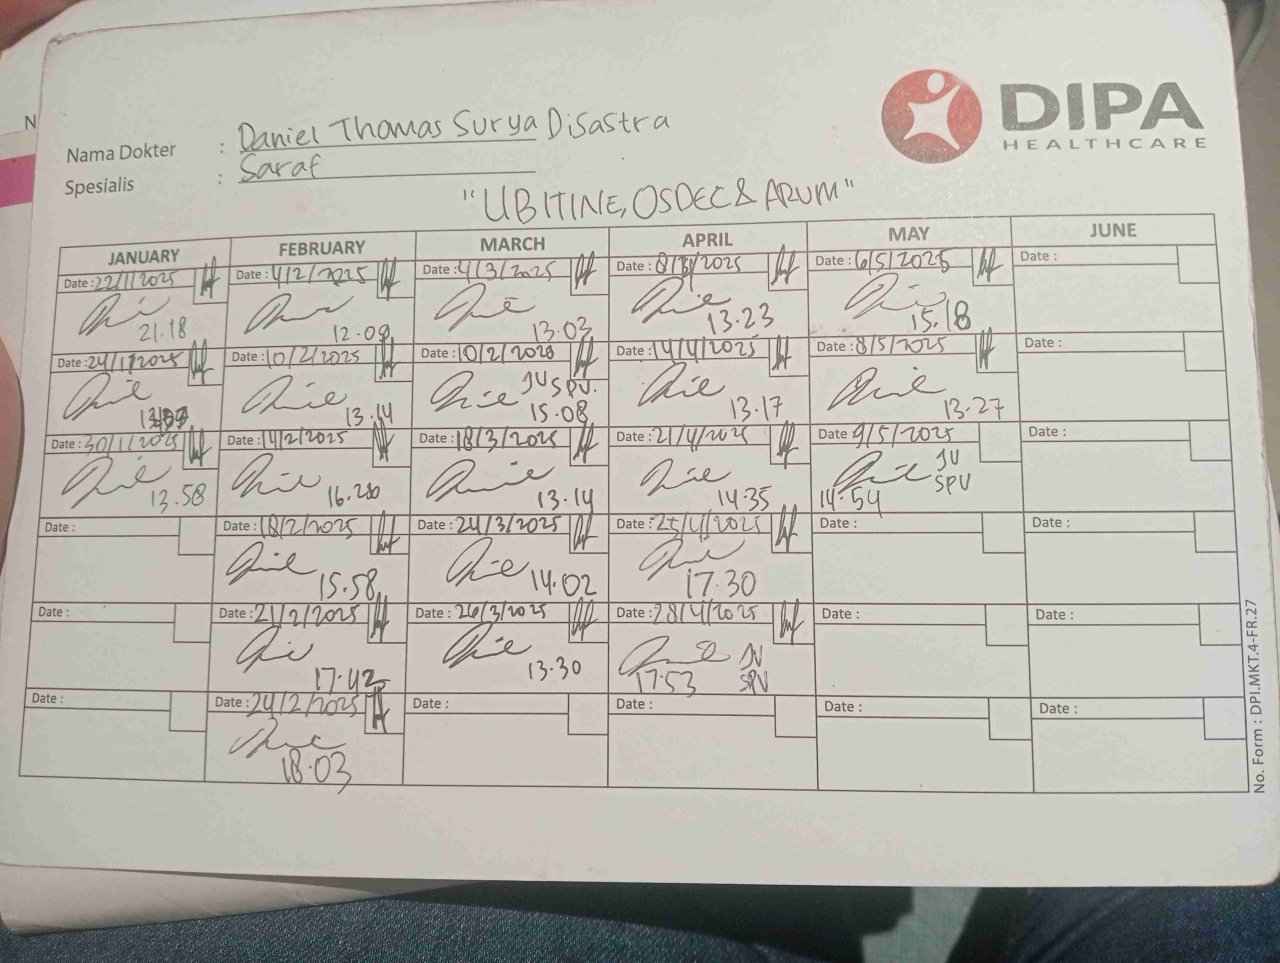 DIPA
HEALTHCARE
Nama Dokter : Daniel Thomas Surya Disastra
Spesialis : Saraf
"UBITINE, OSDEC & ARUM"
JANUARY FEBRUARY MARCH APRIL MAY JUNE
Date : 22/1/2025 Date : 4/2/2025 Date : 4/3/2025 Date : 8/ /2025 Date : 6/5/2025 Date :
21.18 12.09 13.03 13.23 15.18
Date : 24/1/2025 Date : 10/2/2025 Date : 10/2/2025 Date : 14/4/2025 Date : 8/5/2025 Date :
JV SPV.
13.14 15.08 13.17 13.27
Date : 30/1/2025 Date : 14/2/2025 Date : 18/3/2025 Date : 21/4/2025 Date 9/5/2025 Date :
JV
SPV
13.58 13.14 14.35 14.54
Date : Date : 18/2/2025 Date : 24/3/2025 Date : 25/4/2025 Date : Date :
15.58 14.02 17.30
Date : Date : 21/2/2025 Date : 26/3/2025 Date : 28/4/2025 Date : Date :
JV
17.42 13.30 17.53 SPV
Date : Date : 24/2/2025 Date : Date : Date : Date :
18.03
No. Form : DPI.MKT.4-FR.27